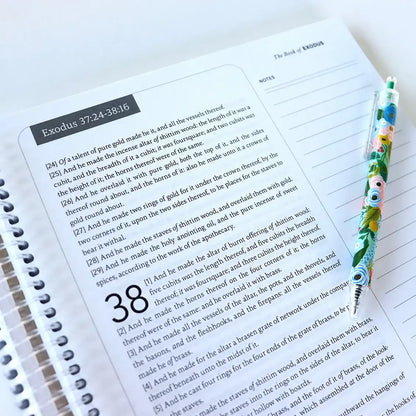 The Book of EXODUS
NOTES
Exodus 37:24-38:16
[24] Of a talent of pure gold made he it, and all the vessels thereof.
[25] And he made the incense altar of shittim wood: the length of it was a
cubit, and the breadth of it a cubit; it was foursquare; and two cubits was
the height of it; the horns thereof were of the same.
[26] And he overlaid it with pure gold, both the top of it, and the sides
thereof round about, and the horns of it: also he made unto it a crown of
gold round about.
[27] And he made two rings of gold for it under the crown thereof, by the
two corners of it, upon the two sides thereof, to be places for the staves to
bear it withal.
[28] And he made the staves of shittim wood, and overlaid them with gold.
[29] And he made the holy anointing oil, and the pure incense of sweet
spices, according to the work of the apothecary.
38 [1] And he made the altar of burnt offering of shittim wood:
five cubits was the length thereof, and five cubits the breadth
thereof; it was foursquare; and three cubits the height thereof.
[2] And he made the horns thereof on the four corners of it; the horns
thereof were of the same: and he overlaid it with brass.
[3] And he made all the vessels of the altar, the pots, and the shovels, and
the basons, and the fleshhooks, and the firepans: all the vessels thereof
made he of brass.
[4] And he made for the altar a brasen grate of network under the compass
thereof beneath unto the midst of it.
[5] And he cast four rings for the four ends of the grate of brass, to be
the staves.
made the staves of shittim wood, and overlaid them with brass.
the staves into the rings on the sides of the altar, to bear it
hollow with boards.
of brass, and the foot of it of brass, of the look
which assembled at the door of the
the hangings of